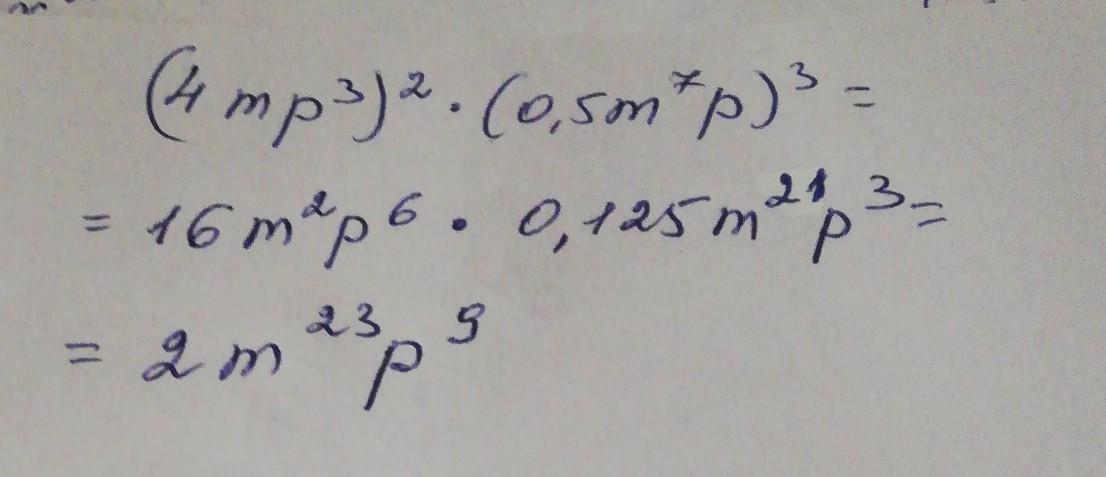 (4mp³)² · (0,5m⁷p)³ =
= 16m²p⁶ · 0,125m²¹p³ =
= 2m²³p⁹